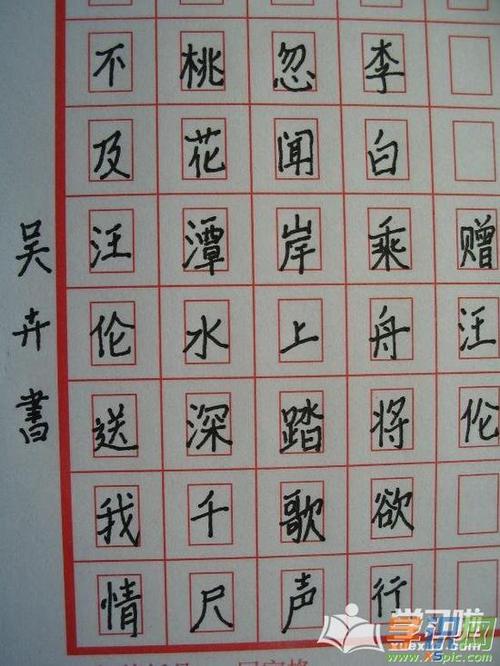 赠汪伦
李白乘舟将欲行
忽闻岸上踏歌声
桃花潭水深千尺
不及汪伦送我情
吴卉書
www.X5pic.com